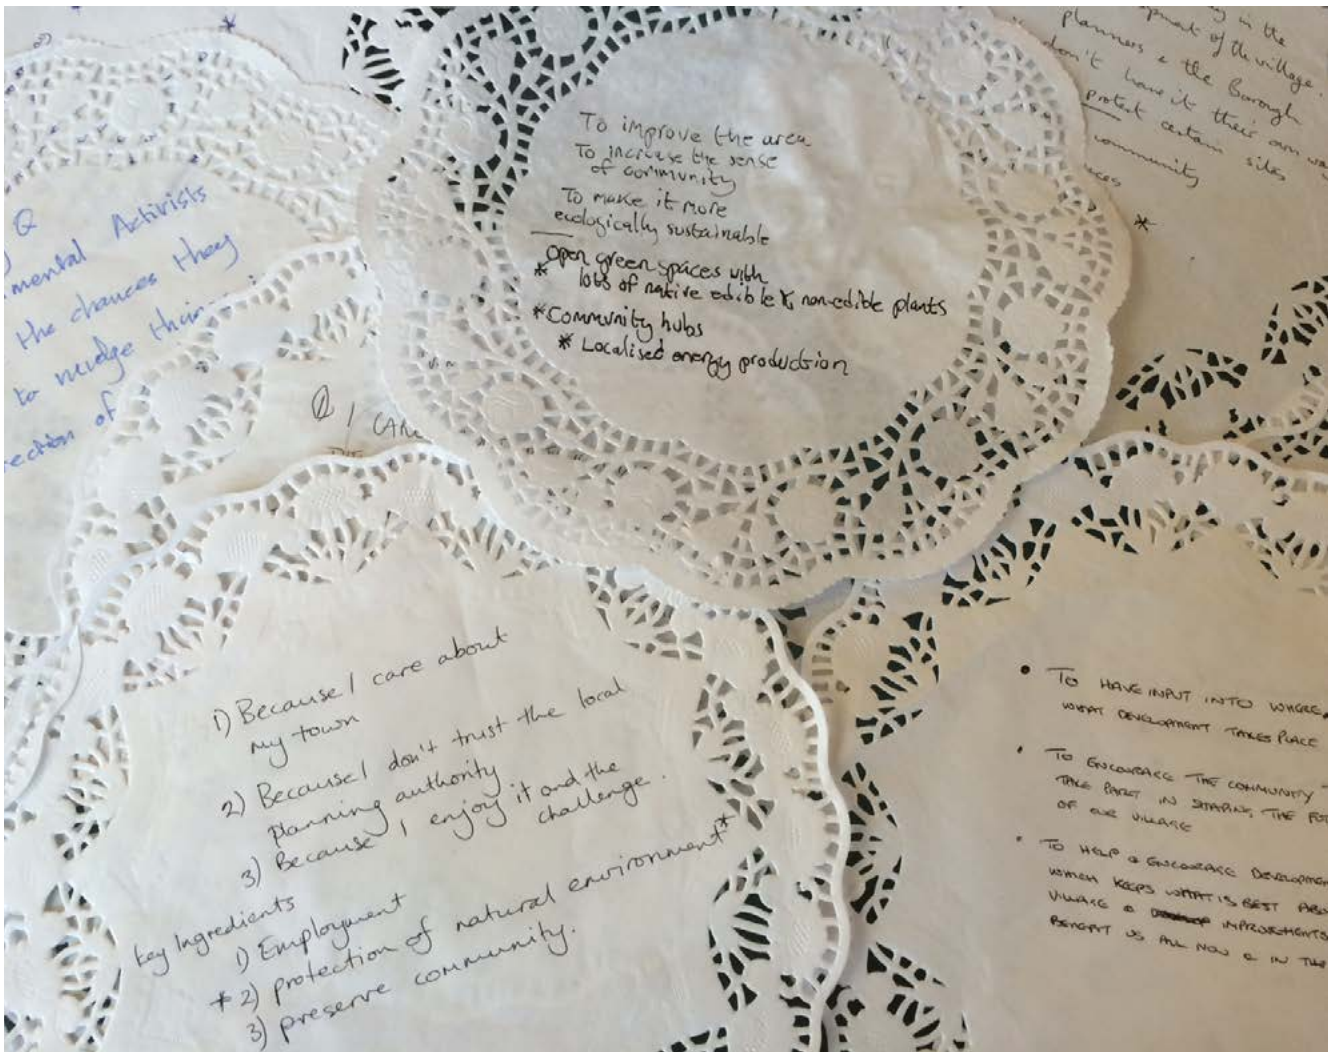 To improve the area
To increase the sense
of community
To make it more
ecologically sustainable
Open green spaces with
* lots of native edible & non-edible plants
* Community hubs
* Localised energy production
in the
of the village.
planners & the Borough
don't have it their own
protect certain sites
community
*
Q
Activists
the chances they
to nudge
of
Q I CARE
1) Because I care about
my town
2) Because I don't trust the local
planning authority
3) Because I enjoy it and the
challenge.
Key Ingredients
1) Employment
* 2) protection of natural environment *
3) preserve community.
• TO HAVE INPUT INTO WHERE,
WHAT DEVELOPMENT TAKES PLACE
• TO ENCOURAGE THE COMMUNITY
TAKE PART IN SHAPING THE
OF OUR VILLAGE
• TO HELP & ENCOURAGE
WHICH KEEPS WHAT IS BEST
VILLAGE & IMPROVEMENTS
BENEFIT US ALL NOW & IN THE